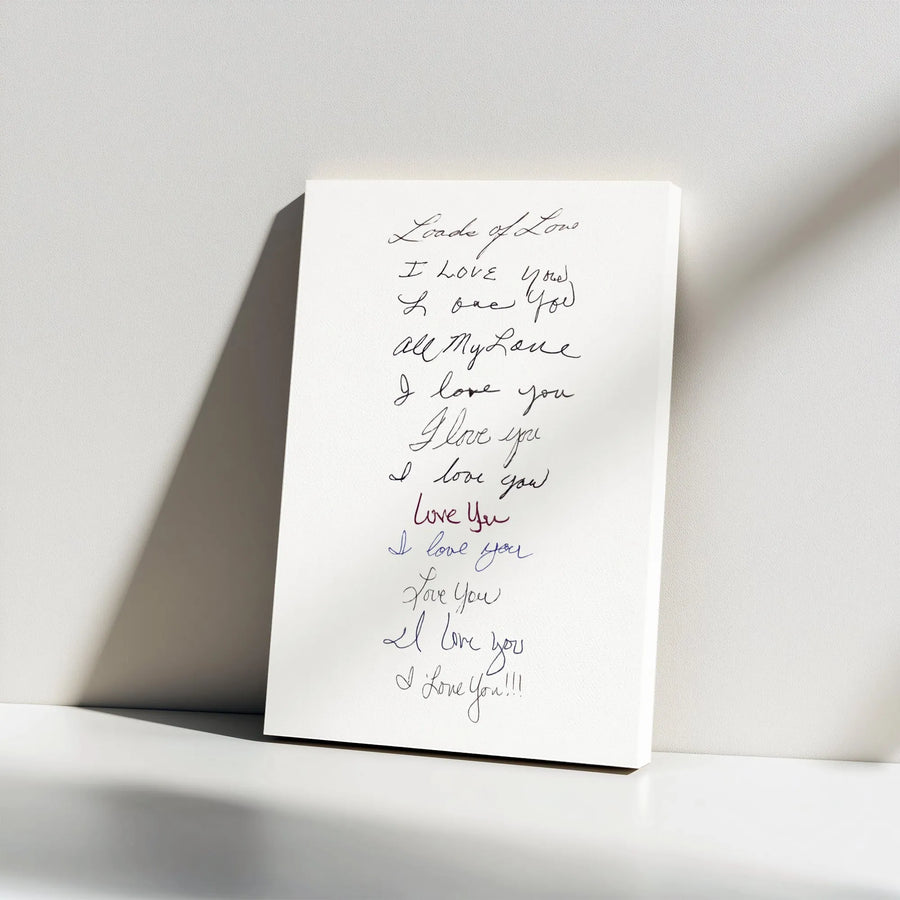 Loads of Love
I LOVE you
I Love You
All My Love
I love you
I love you
I love you
Love You
I love you
Love You
I love you
I Love You!!!